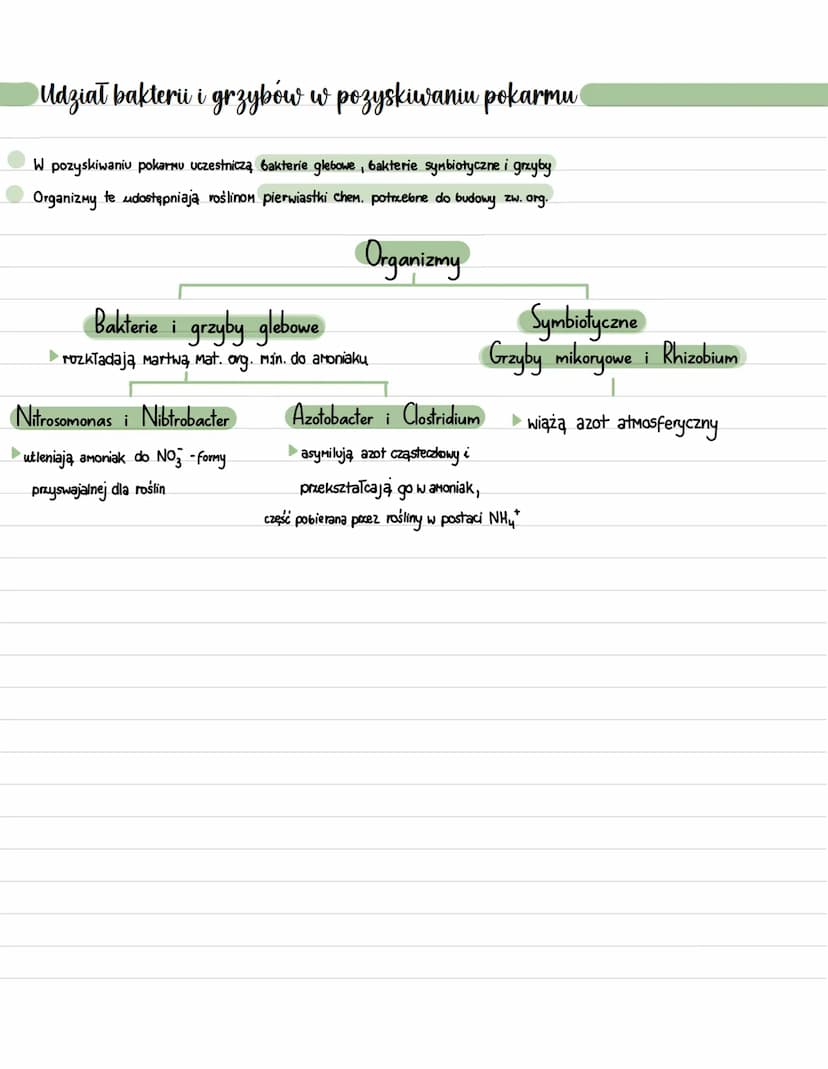 Udział bakterii i grzybów w pozyskiwaniu pokarmu
W pozyskiwaniu pokarmu uczestniczą bakterie glebowe, bakterie symbiotyczne i grzyby
Organizmy te udostępniają roślinom pierwiastki chem. potrzebne do budowy zw. org.
Organizmy
Bakterie i grzyby glebowe
rozkładają martwą mat. org. min. do amoniaku
Symbiotyczne
Grzyby mikoryowe i Rhizobium
wiążą azot atmosferyczny
Nitrosomonas i Nibtrobacter
utleniają amoniak do NO₃⁻ - formy
przyswajalnej dla roślin
Azotobacter i Clostridium
asymilują azot cząsteczkowy i
przekształcają go w amoniak,
część pobierana przez rośliny w postaci NH₄⁺